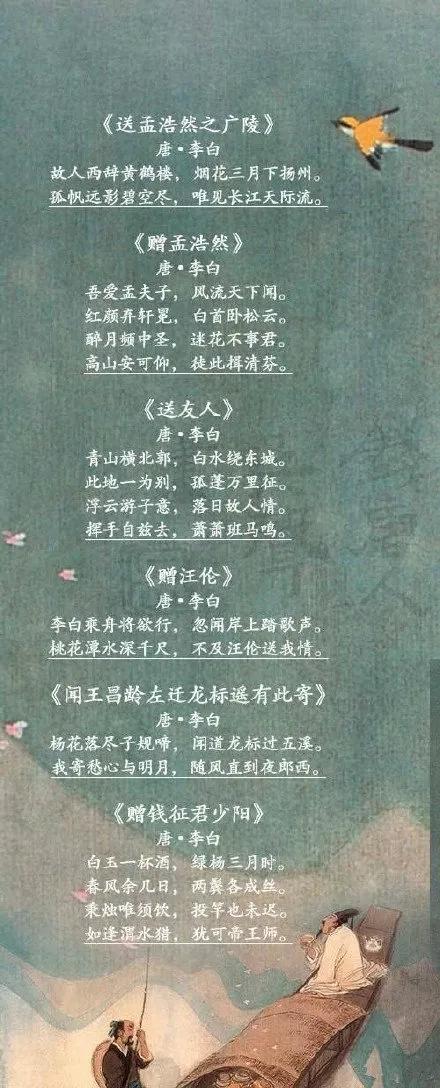 《送孟浩然之广陵》
唐·李白
故人西辞黄鹤楼，烟花三月下扬州。
孤帆远影碧空尽，唯见长江天际流。
《赠孟浩然》
唐·李白
吾爱孟夫子，风流天下闻。
红颜弃轩冕，白首卧松云。
醉月频中圣，迷花不事君。
高山安可仰，徒此揖清芬。
《送友人》
唐·李白
青山横北郭，白水绕东城。
此地一为别，孤蓬万里征。
浮云游子意，落日故人情。
挥手自兹去，萧萧班马鸣。
《赠汪伦》
唐·李白
李白乘舟将欲行，忽闻岸上踏歌声。
桃花潭水深千尺，不及汪伦送我情。
《闻王昌龄左迁龙标遥有此寄》
唐·李白
杨花落尽子规啼，闻道龙标过五溪。
我寄愁心与明月，随风直到夜郎西。
《赠钱征君少阳》
唐·李白
白玉一杯酒，绿杨三月时。
春风余几日，两鬓各成丝。
秉烛唯须饮，投竿也未迟。
如逢渭水猎，犹可帝王师。